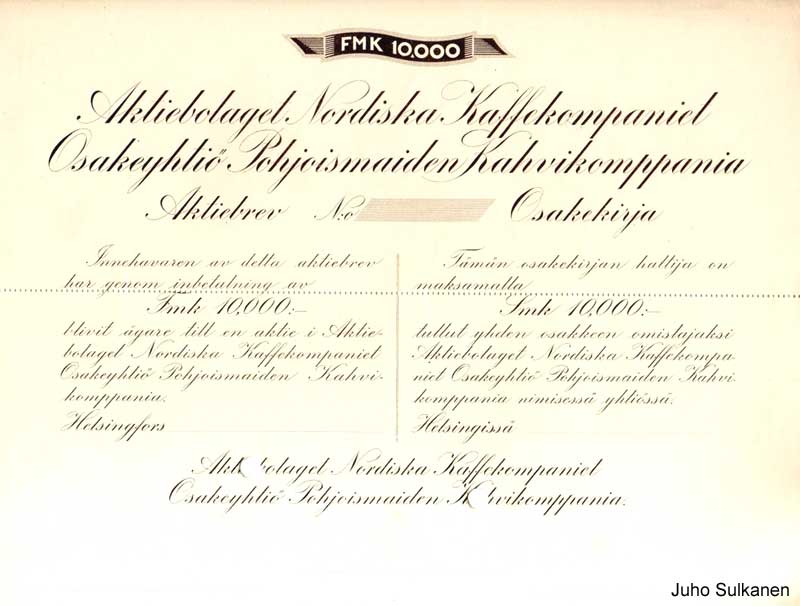 FMK 10.000
Aktiebolaget Nordiska Kaffekompaniet
Osakeyhtiö Pohjoismaiden Kahvikomppania
Aktiebrev N:o Osakekirja
Innehavaren av detta aktiebrev
har genom inbetalning av
Fmk 10,000:—
blivit ägare till en aktie i Aktie-
bolaget Nordiska Kaffekompaniet
Osakeyhtiö Pohjoismaiden Kahvi-
komppania.
Helsingfors
Tämän osakekirjan haltija on
maksamalla
Smk 10,000:—
tullut yhden osakkeen omistajaksi
Aktiebolaget Nordiska Kaffekompa-
niet Osakeyhtiö Pohjoismaiden Kahvi-
komppania nimisessä yhtiössä.
Helsingissä
Aktiebolaget Nordiska Kaffekompaniet
Osakeyhtiö Pohjoismaiden Kahvikomppania.
Juho Sulkanen